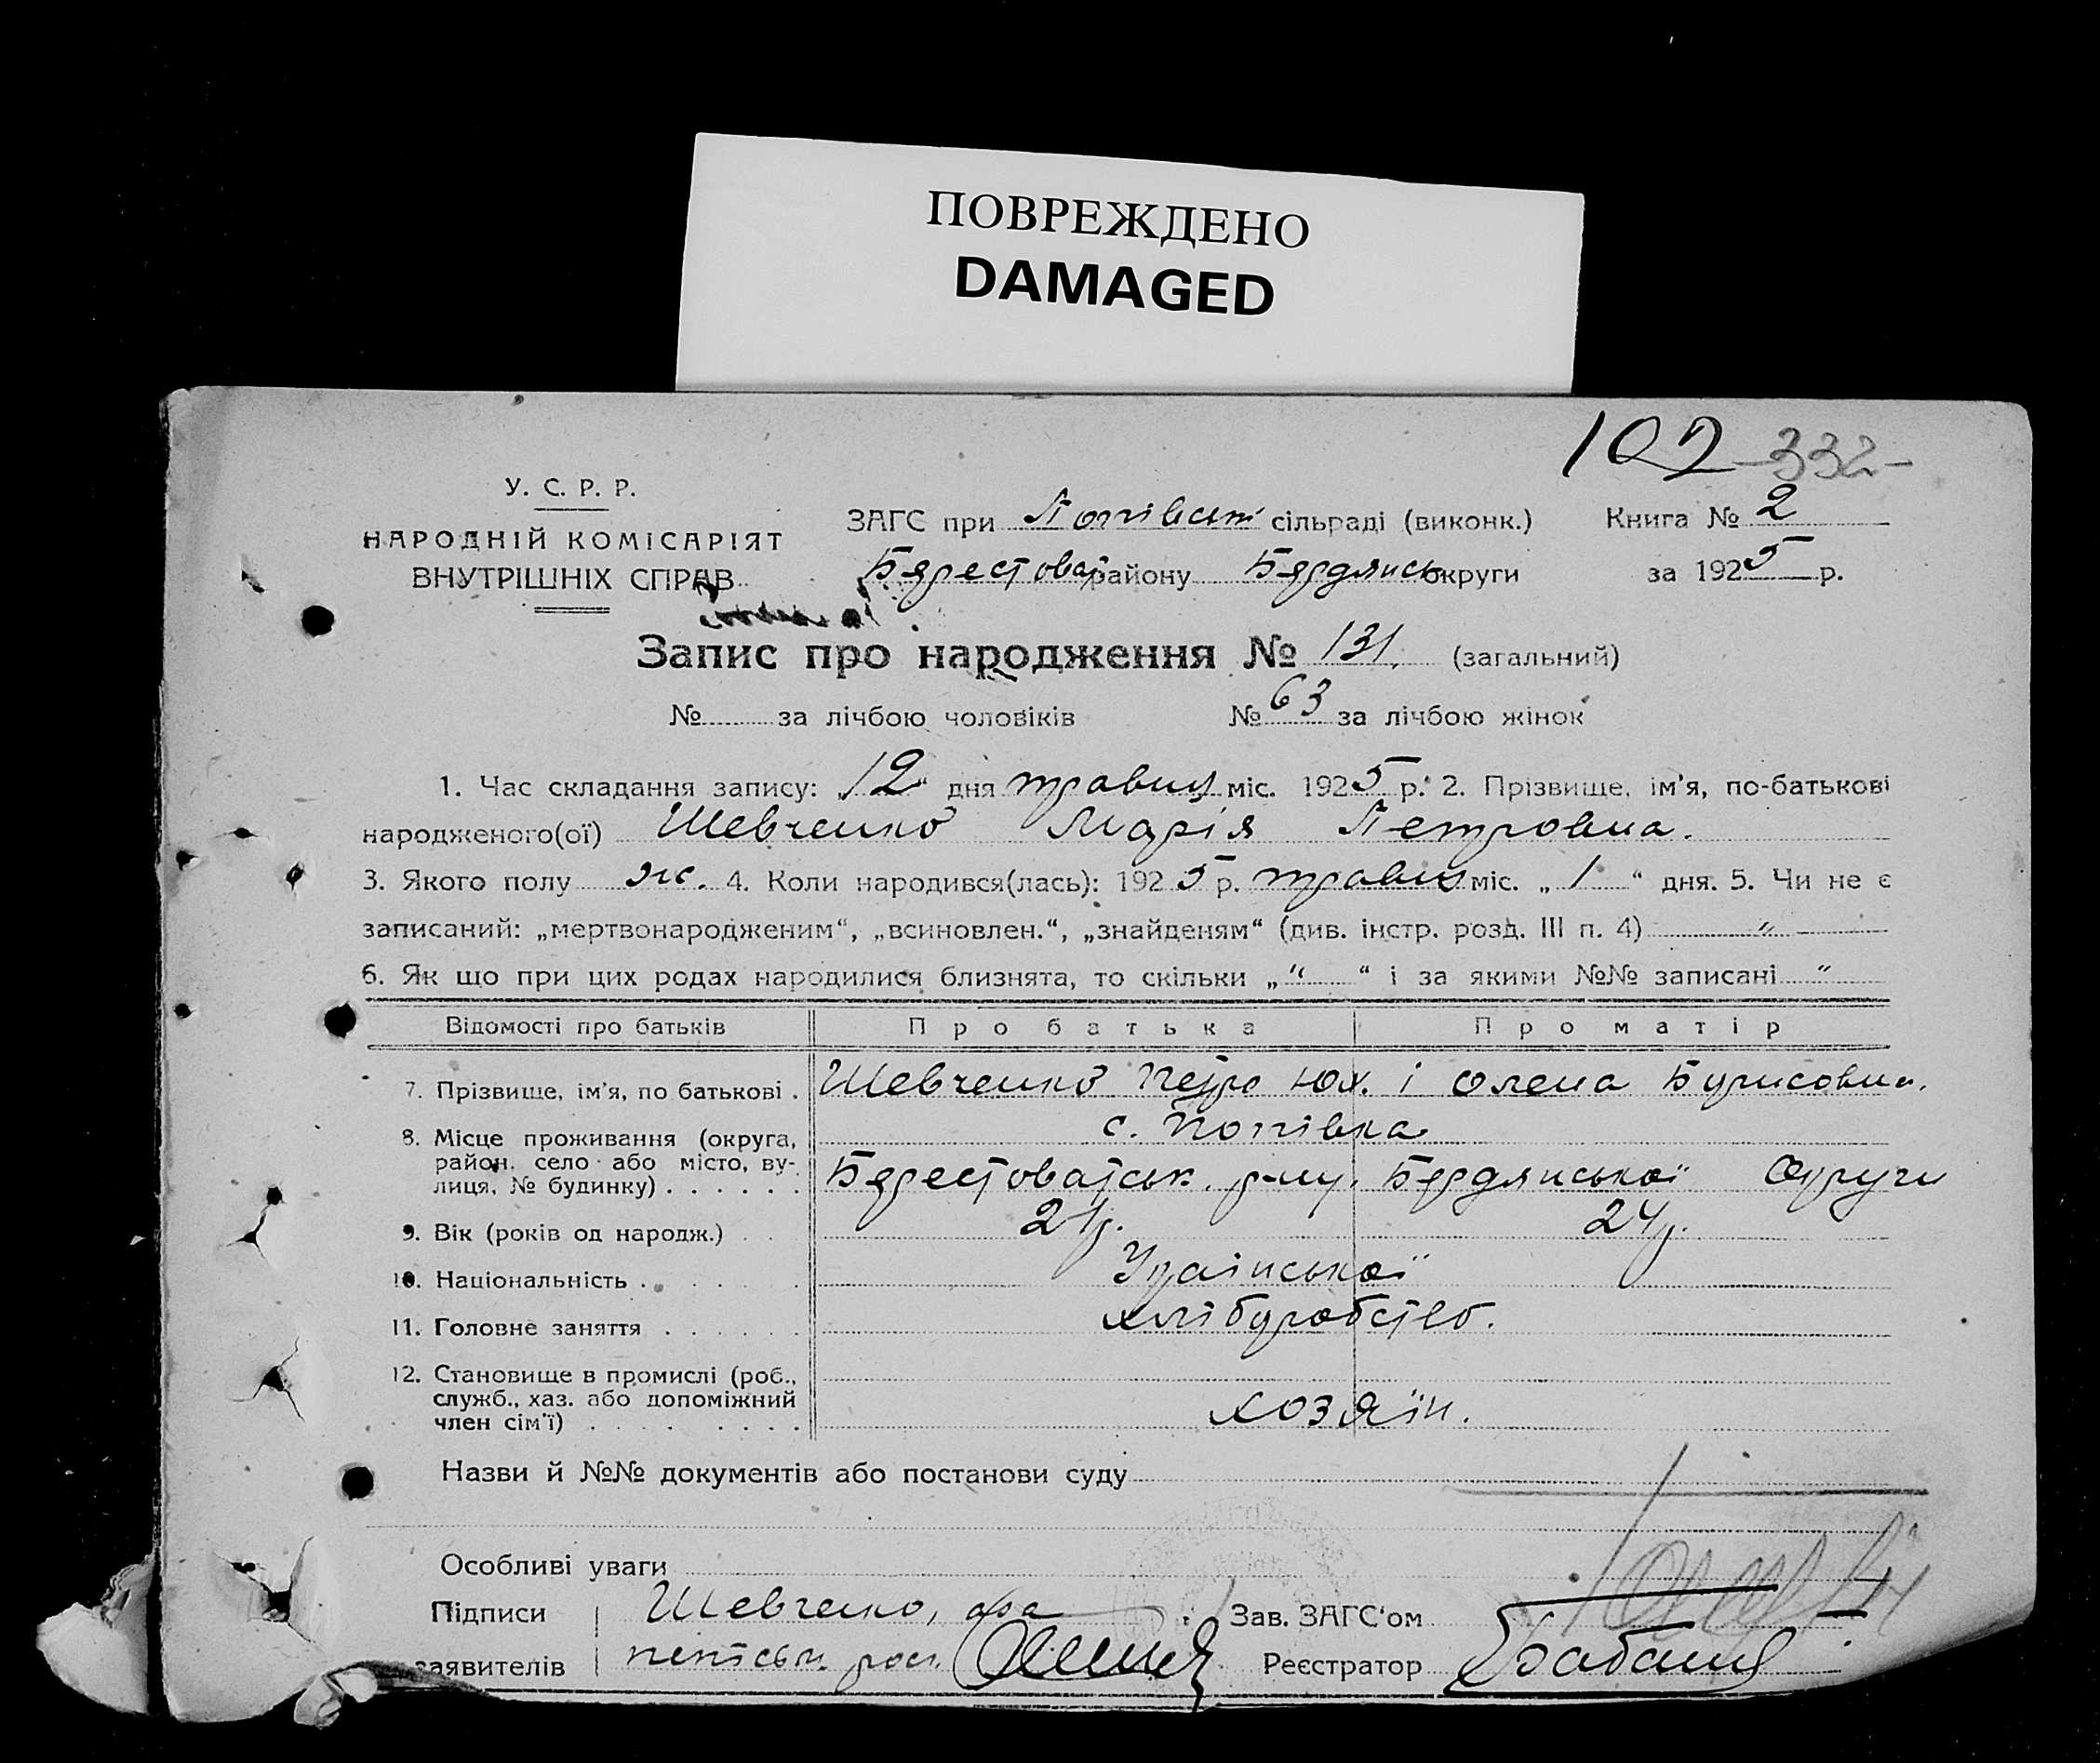 ПОВРЕЖДЕНО
DAMAGED
102 332
У. С. Р. Р.
НАРОДНІЙ КОМІСАРІЯТ
ВНУТРІШНІХ СПРАВ
ЗАГС при Попівськ сільраді (виконк.) Книга № 2
Берестоват району Бердянськ округи за 1925 р.
Запис про народження № 131. (загальний)
№ за лічбою чоловіків № 63 за лічбою жінок
1. Час складання запису: „12“ дня травня міс. 1925 р. 2. Прізвище, ім'я, по-батькові
народженого(ої) Шевченко Марія Петровна.
3. Якого полу ж. 4. Коли народився(лась): 1925 р. травня міс. „1“ дня. 5. Чи не є
записаний: „мертвонародженим“, „всиновлен.“, „знайденям“ (див. інстр. розд. III п. 4) "
6. Як що при цих родах народилися близнята, то скільки „"“ і за якими №№ записані "
Відомості про батьків Про батька Про матір
7. Прізвище, ім'я, по батькові . Шевченко Петро Юх. і Олена Борисовна.
8. Місце проживання (округа, район, село або місто, вулиця, № будинку) . . . . . . с. Попівка
Берестоватськ. р-ну, Бердянської Округи
9. Вік (років од народж.) . . 21р. 24р.
10. Національність . . . . . Української
11. Головне заняття . . . . . . хліборобство.
12. Становище в промислі (роб.,
служб., хаз. або допоміжний
член сім'ї) . . . . . . . . хозяїн.
Назви й №№ документів або постанови суду
Особливі уваги
Підписи Шевченко, Зав. ЗАГС'ом
заявителів Реєстратор